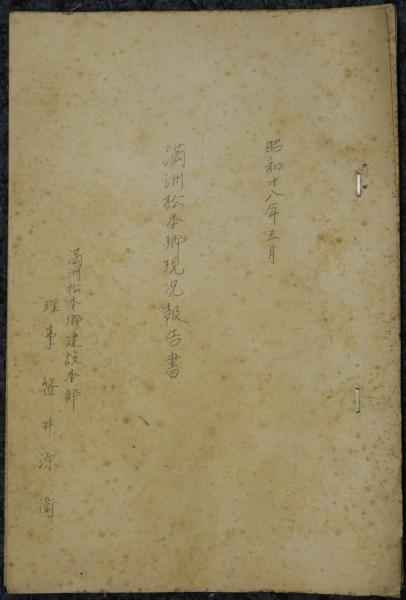 昭和十八年五月
満洲松本郷現况報告書
満洲松本郷建設本部
理事 笹井源衛